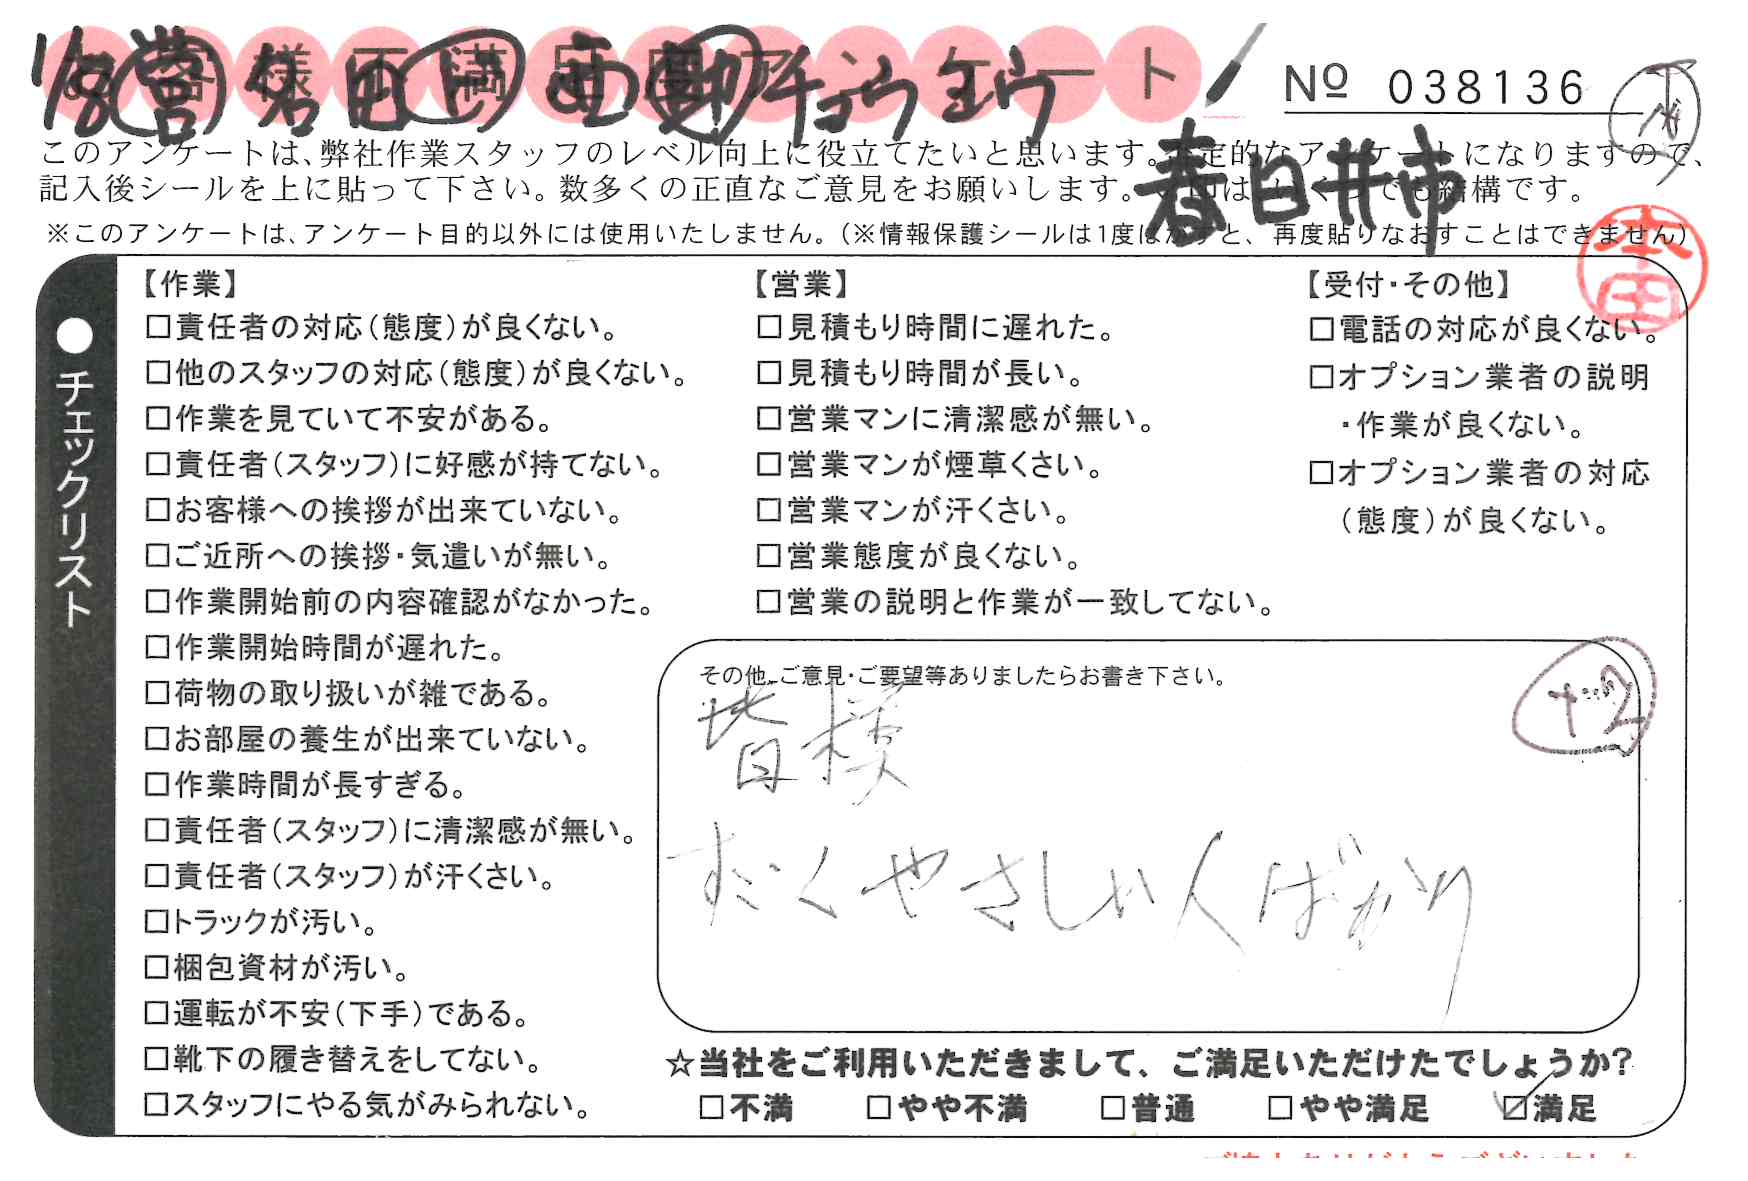 お客様不満足度アンケート
1/8 営 名田 下 西 チョウ
No 038136
このアンケートは、弊社作業スタッフのレベル向上に役立てたいと思います。否定的なアンケートになりますので、
記入後シールを上に貼って下さい。数多くの正直なご意見をお願いします。
春日井市
でも結構です。
※このアンケートは、アンケート目的以外には使用いたしません。(※情報保護シールは1度はがすと、再度貼りなおすことはできません)
本田
●チェックリスト
【作業】
□責任者の対応(態度)が良くない。
□他のスタッフの対応(態度)が良くない。
□作業を見ていて不安がある。
□責任者(スタッフ)に好感が持てない。
□お客様への挨拶が出来ていない。
□ご近所への挨拶・気遣いが無い。
□作業開始前の内容確認がなかった。
□作業開始時間が遅れた。
□荷物の取り扱いが雑である。
□お部屋の養生が出来ていない。
□作業時間が長すぎる。
□責任者(スタッフ)に清潔感が無い。
□責任者(スタッフ)が汗くさい。
□トラックが汚い。
□梱包資材が汚い。
□運転が不安(下手)である。
□靴下の履き替えをしてない。
□スタッフにやる気がみられない。
【営業】
□見積もり時間に遅れた。
□見積もり時間が長い。
□営業マンに清潔感が無い。
□営業マンが煙草くさい。
□営業マンが汗くさい。
□営業態度が良くない。
□営業の説明と作業が一致してない。
【受付・その他】
□電話の対応が良くない。
□オプション業者の説明
・作業が良くない。
□オプション業者の対応
(態度)が良くない。
その他、ご意見・ご要望等ありましたらお書き下さい。
+2
皆様
すごくやさしい人ばかり
☆当社をご利用いただきまして、ご満足いただけたでしょうか?
□不満 □やや不満 □普通 □やや満足 ☑満足